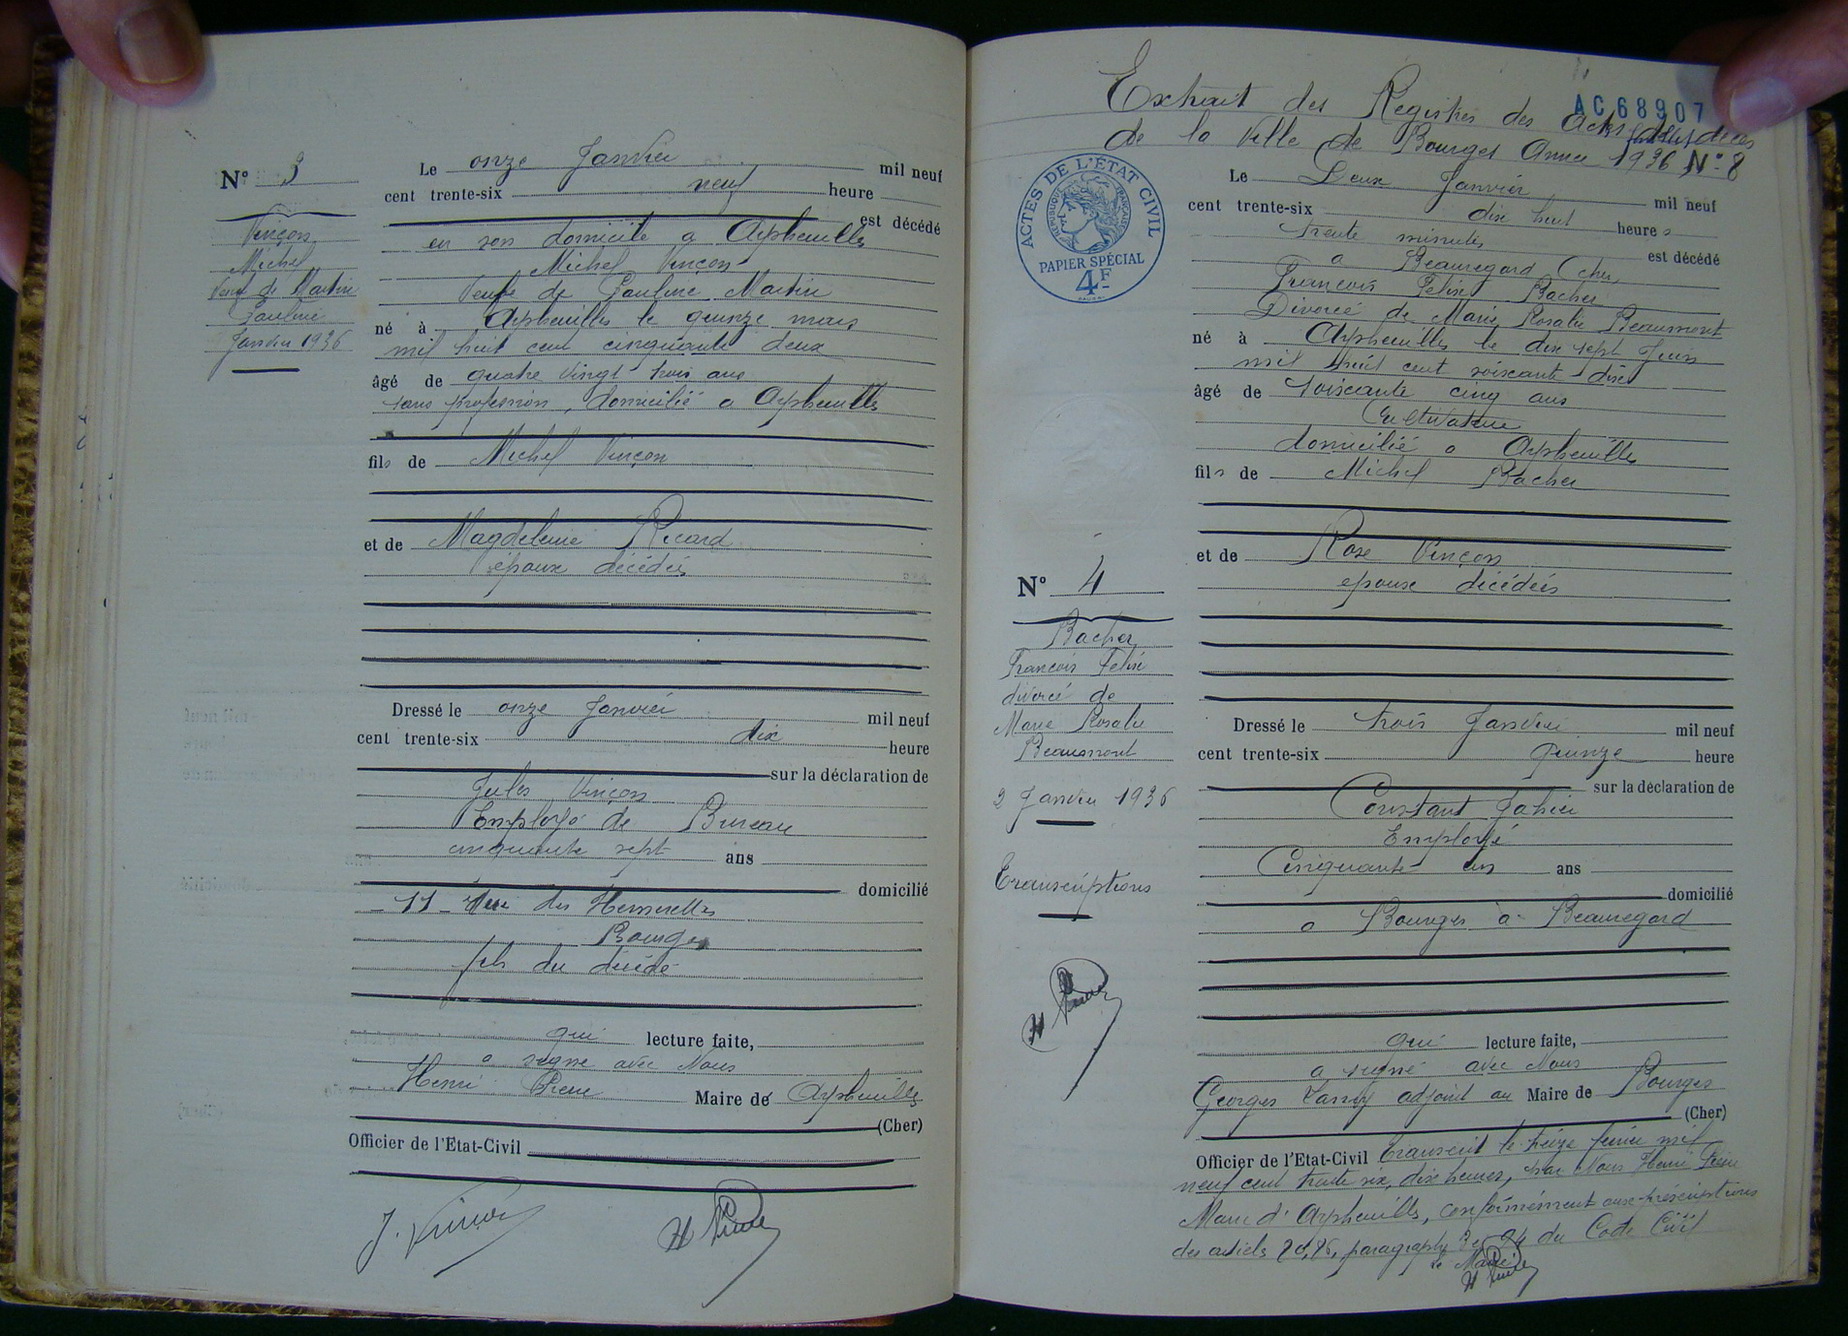 N° 3
Vinçon
Michel
Veuf de Martin
Pauline
Janvier 1936
Le onze Janvier mil neuf
cent trente-six neuf heure
est décédé
en son domicile a Arpheuilles
Michel Vinçon
Veuf de Pauline Martin
né à Arpheuilles le quinze mars
mil huit cent cinquante deux
âgé de quatre vingt trois ans
sans profession, domicilié a Arpheuilles
fils de Michel Vinçon
et de Magdeleine Ricard
époux décédés
Dressé le onze Janvier mil neuf
cent trente-six dix heure
sur la déclaration de
Jules Vinçon
Employé de Bureau
cinquante sept ans
domicilié
11 Rue des
Bourges
fils du décédé
qui lecture faite,
a signé avec Nous
Henri Maire de Arpheuilles
(Cher)
Officier de l'Etat-Civil
J. Vinçon
Extrait des Registres des Actes de décès
AC68907
de la Ville de Bourges Année 1936 N° 8
ACTES DE L'ÉTAT CIVIL
RÉPUBLIQUE FRANÇAISE
PAPIER SPÉCIAL
4F
N° 4
Bacher
Francois Felix
divorcé de
Marie Rosalie
Beaumont
2 Janvier 1936
Transcriptions
Le Deux Janvier mil neuf
cent trente-six dix huit heures
trente minutes est décédé
a Beauregard (cher)
Francois Felix Bacher
Divorcé de Marie Rosalie Beaumont
né à Arpheuilles le dix sept Juin
mil huit cent soixante dix
âgé de soixante cinq ans
Cultivateur
domicilié a Arpheuilles
fils de Michel Bacher
et de Rose Vinçon
époux décédés
Dressé le trois Janvier mil neuf
cent trente-six Quinze heure
sur la déclaration de
Constant
Employé
Cinquante un ans
domicilié
a Bourges à Beauregard
qui lecture faite,
a signé avec Nous
Georges adjoint au Maire de Bourges
(Cher)
Officier de l'Etat-Civil Transcrit le treize fevrier mil
neuf cent trente six, dix heures, par Nous Henri
Maire d'Arpheuilles, conformément aux prescriptions
des articles 80, 86, paragraphe 94 du Code Civil
le Maire